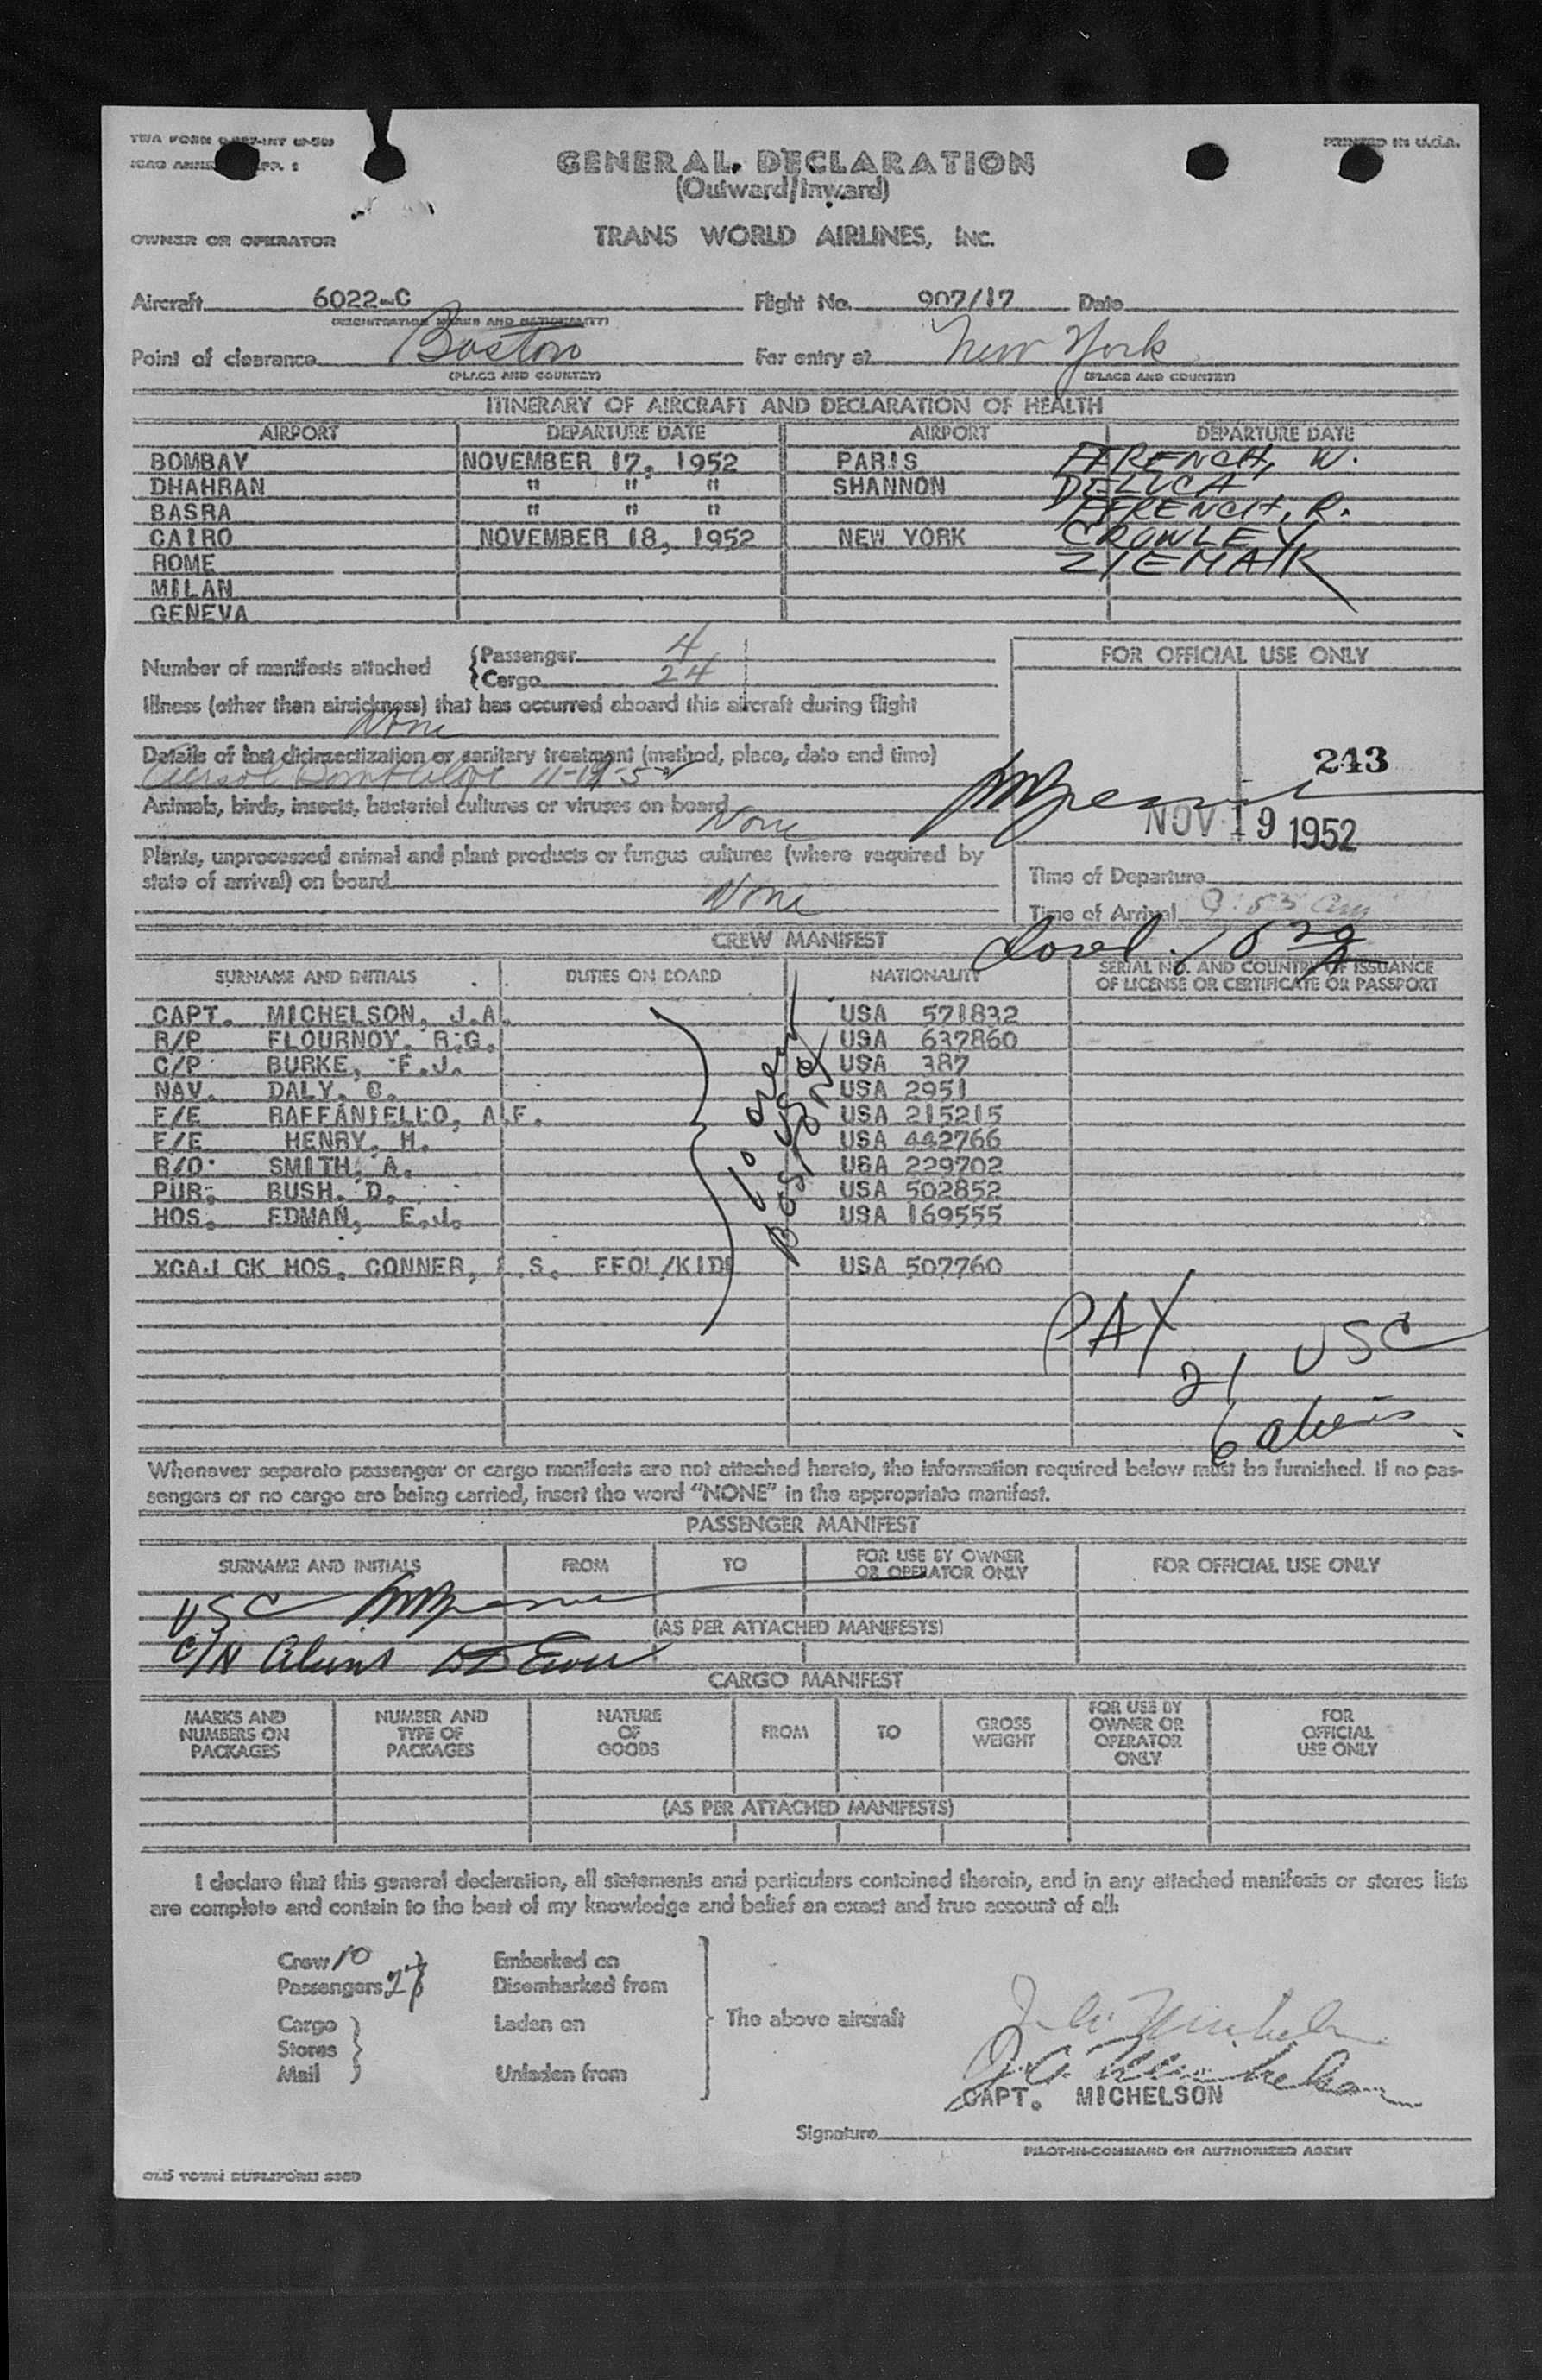 TWA FORM
ICAO ANNEX
PRINTED IN U.S.A.
GENERAL DECLARATION
(Outward/Inward)
OWNER OR OPERATOR
TRANS WORLD AIRLINES, INC.
Aircraft 6022-C Flight No. 907/17 Date
(REGISTRATION MARKS AND NATIONALITY)
Point of clearance Boston For entry at New York
(PLACE AND COUNTRY) (PLACE AND COUNTRY)
ITINERARY OF AIRCRAFT AND DECLARATION OF HEALTH
AIRPORT DEPARTURE DATE AIRPORT DEPARTURE DATE
BOMBAY NOVEMBER 17, 1952 PARIS FFRENCH, W.
DHAHRAN " " " SHANNON DELUCA
BASRA " " " FFRENCH, R.
CAIRO NOVEMBER 18, 1952 NEW YORK CROWLEY
ROME ZIEMAIK
MILAN
GENEVA
Number of manifests attached {Passenger 4
{Cargo 24
FOR OFFICIAL USE ONLY
Illness (other than airsickness) that has occurred aboard this aircraft during flight
None
Details of last disinsectization or sanitary treatment (method, place, date and time)
Aersol Bomb 11-19-52
243
Animals, birds, insects, bacterial cultures or viruses on board None
NOV 19 1952
Plants, unprocessed animal and plant products or fungus cultures (where required by
state of arrival) on board None
Time of Departure
Time of Arrival 9:53 am
CREW MANIFEST
SURNAME AND INITIALS DUTIES ON BOARD NATIONALITY SERIAL NO. AND COUNTRY OF ISSUANCE
OF LICENSE OR CERTIFICATE OR PASSPORT
CAPT. MICHELSON, J.A. USA 571832
R/P FLOURNOY. R.G. USA 637860
C/P BURKE, F.J. USA 387
NAV. DALY, C. USA 2951
F/E RAFFANIELLO, A.F. USA 215215
F/E HENRY, H. USA 442766
R/O SMITH, A. USA 229702
PUR. BUSH, D. USA 502852
HOS. EDMAN, E.J. USA 169555
XCAJ CK HOS. CONNER, .S. FFOL/KIDL USA 507760
10 crew
USC
PAX
21 USC
6 aliens
Whenever separate passenger or cargo manifests are not attached hereto, the information required below must be furnished. If no pas-
sengers or no cargo are being carried, insert the word "NONE" in the appropriate manifest.
PASSENGER MANIFEST
SURNAME AND INITIALS FROM TO FOR USE BY OWNER
OR OPERATOR ONLY FOR OFFICIAL USE ONLY
USC
(AS PER ATTACHED MANIFESTS)
C/N Aliens
CARGO MANIFEST
MARKS AND
NUMBERS ON
PACKAGES
NUMBER AND
TYPE OF
PACKAGES
NATURE
OF
GOODS
FROM
TO
GROSS
WEIGHT
FOR USE BY
OWNER OR
OPERATOR
ONLY
FOR
OFFICIAL
USE ONLY
(AS PER ATTACHED MANIFESTS)
I declare that this general declaration, all statements and particulars contained therein, and in any attached manifests or stores lists
are complete and contain to the best of my knowledge and belief an exact and true account of all:
Crew 10 Embarked on
Passengers 27 Disembarked from
Cargo Laden on The above aircraft
Stores
Mail Unladen from
J.A. Michelson
J.A. Michelson
CAPT. MICHELSON
Signature
PILOT-IN-COMMAND OR AUTHORIZED AGENT
OLD TOWN DUPLIFORM